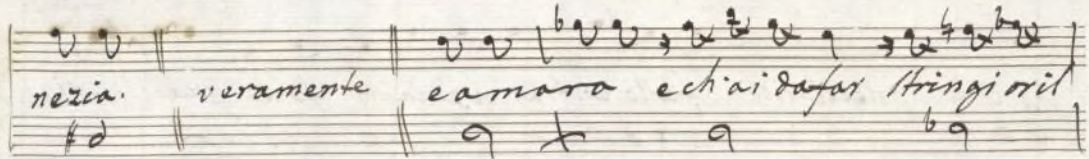 nezia. veramente eamara echai dafar stringi oril